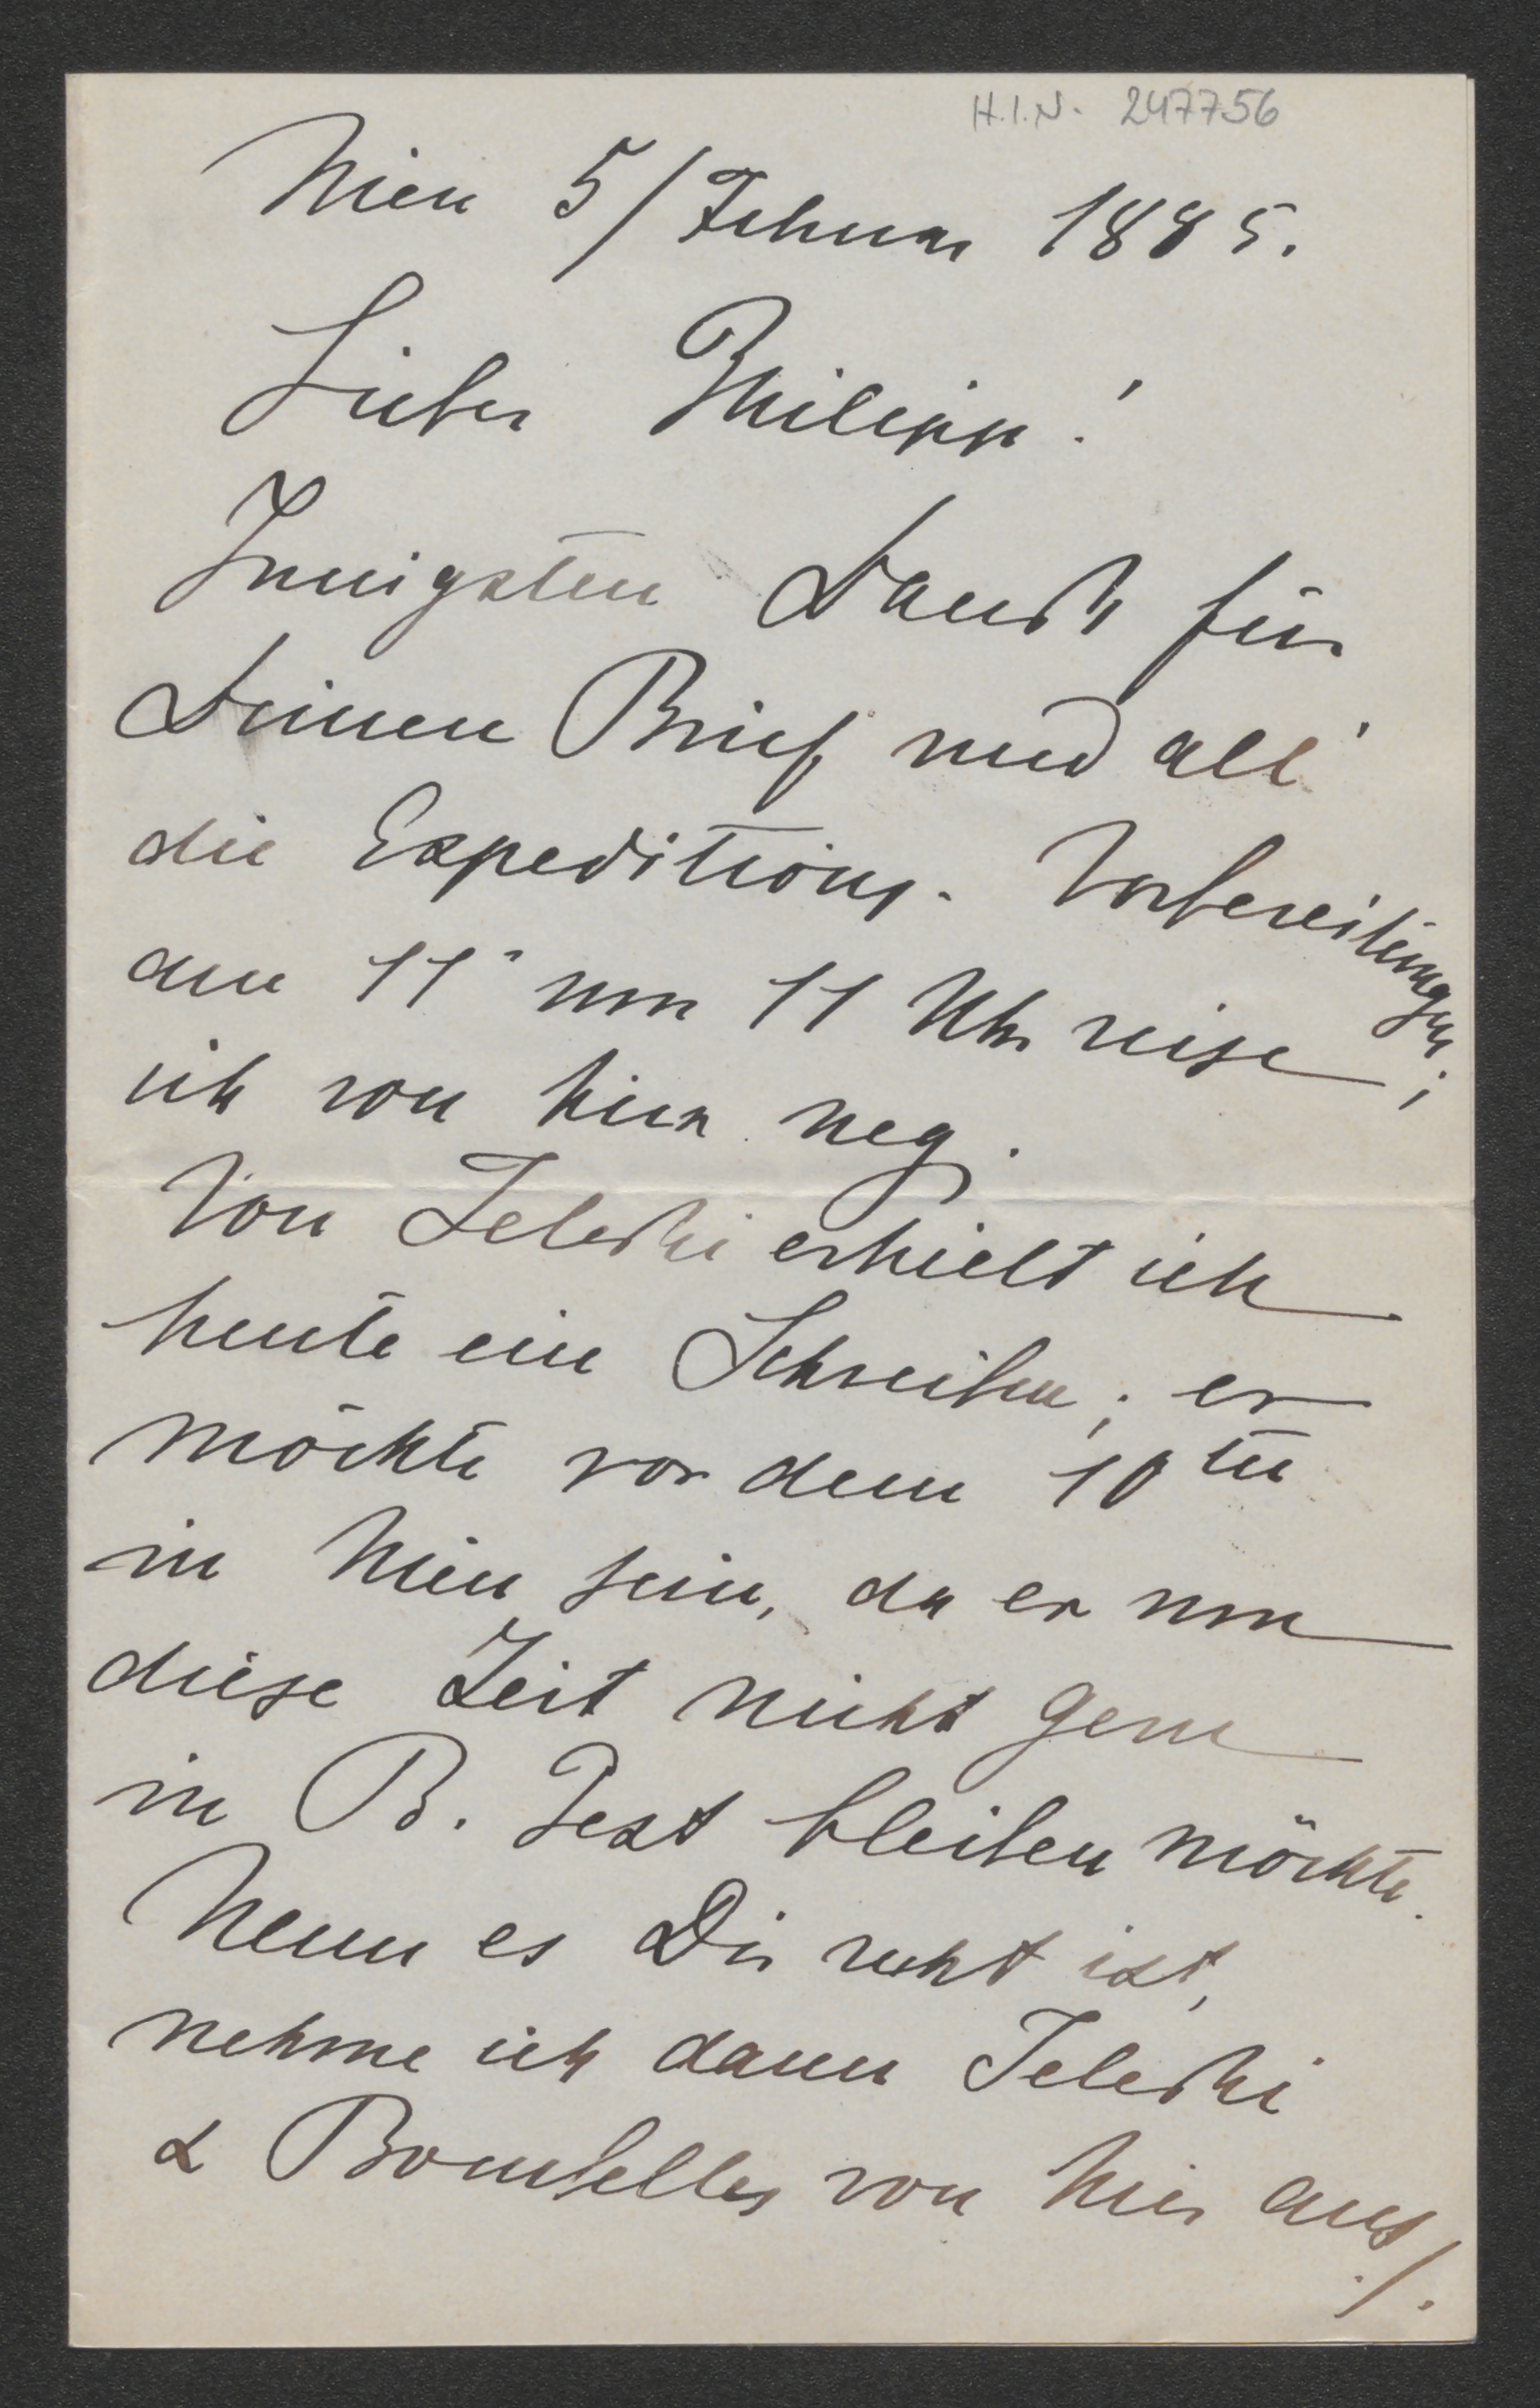 H.I.N. 247756
Wien 5/Februar 1885.
Lieber Philipp!
Innigsten Dank für
Deinen Brief und all'
die Expeditions-Vorbereitungen;
am 11' um 11 Uhr reise
ich von hier weg.
Von Teleki erhielt ich
heute ein Schreiben; er
möchte vor dem 10ten
in Wien sein, da er um
diese Zeit nicht gern
in B. Pest bleiben möchte.
Wenn es Dir recht ist,
nehme ich dann Teleki
& Bombelles von hier aus
./.